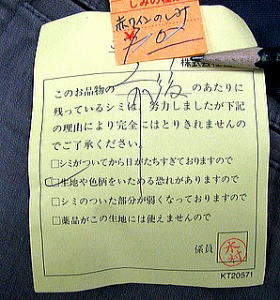 しみの種
赤ワインのしみ
株式
このお品物の 前後 のあたりに
残っているシミは、努力しましたが下記
の理由により完全にはとりきれませんの
でご了承ください。
□シミがついてから日がたちすぎておりますので
□生地や色柄をいためる恐れがありますので
□シミのついた部分が弱くなっておりますので
□薬品がこの生地には使えませんので
係員
KT20571